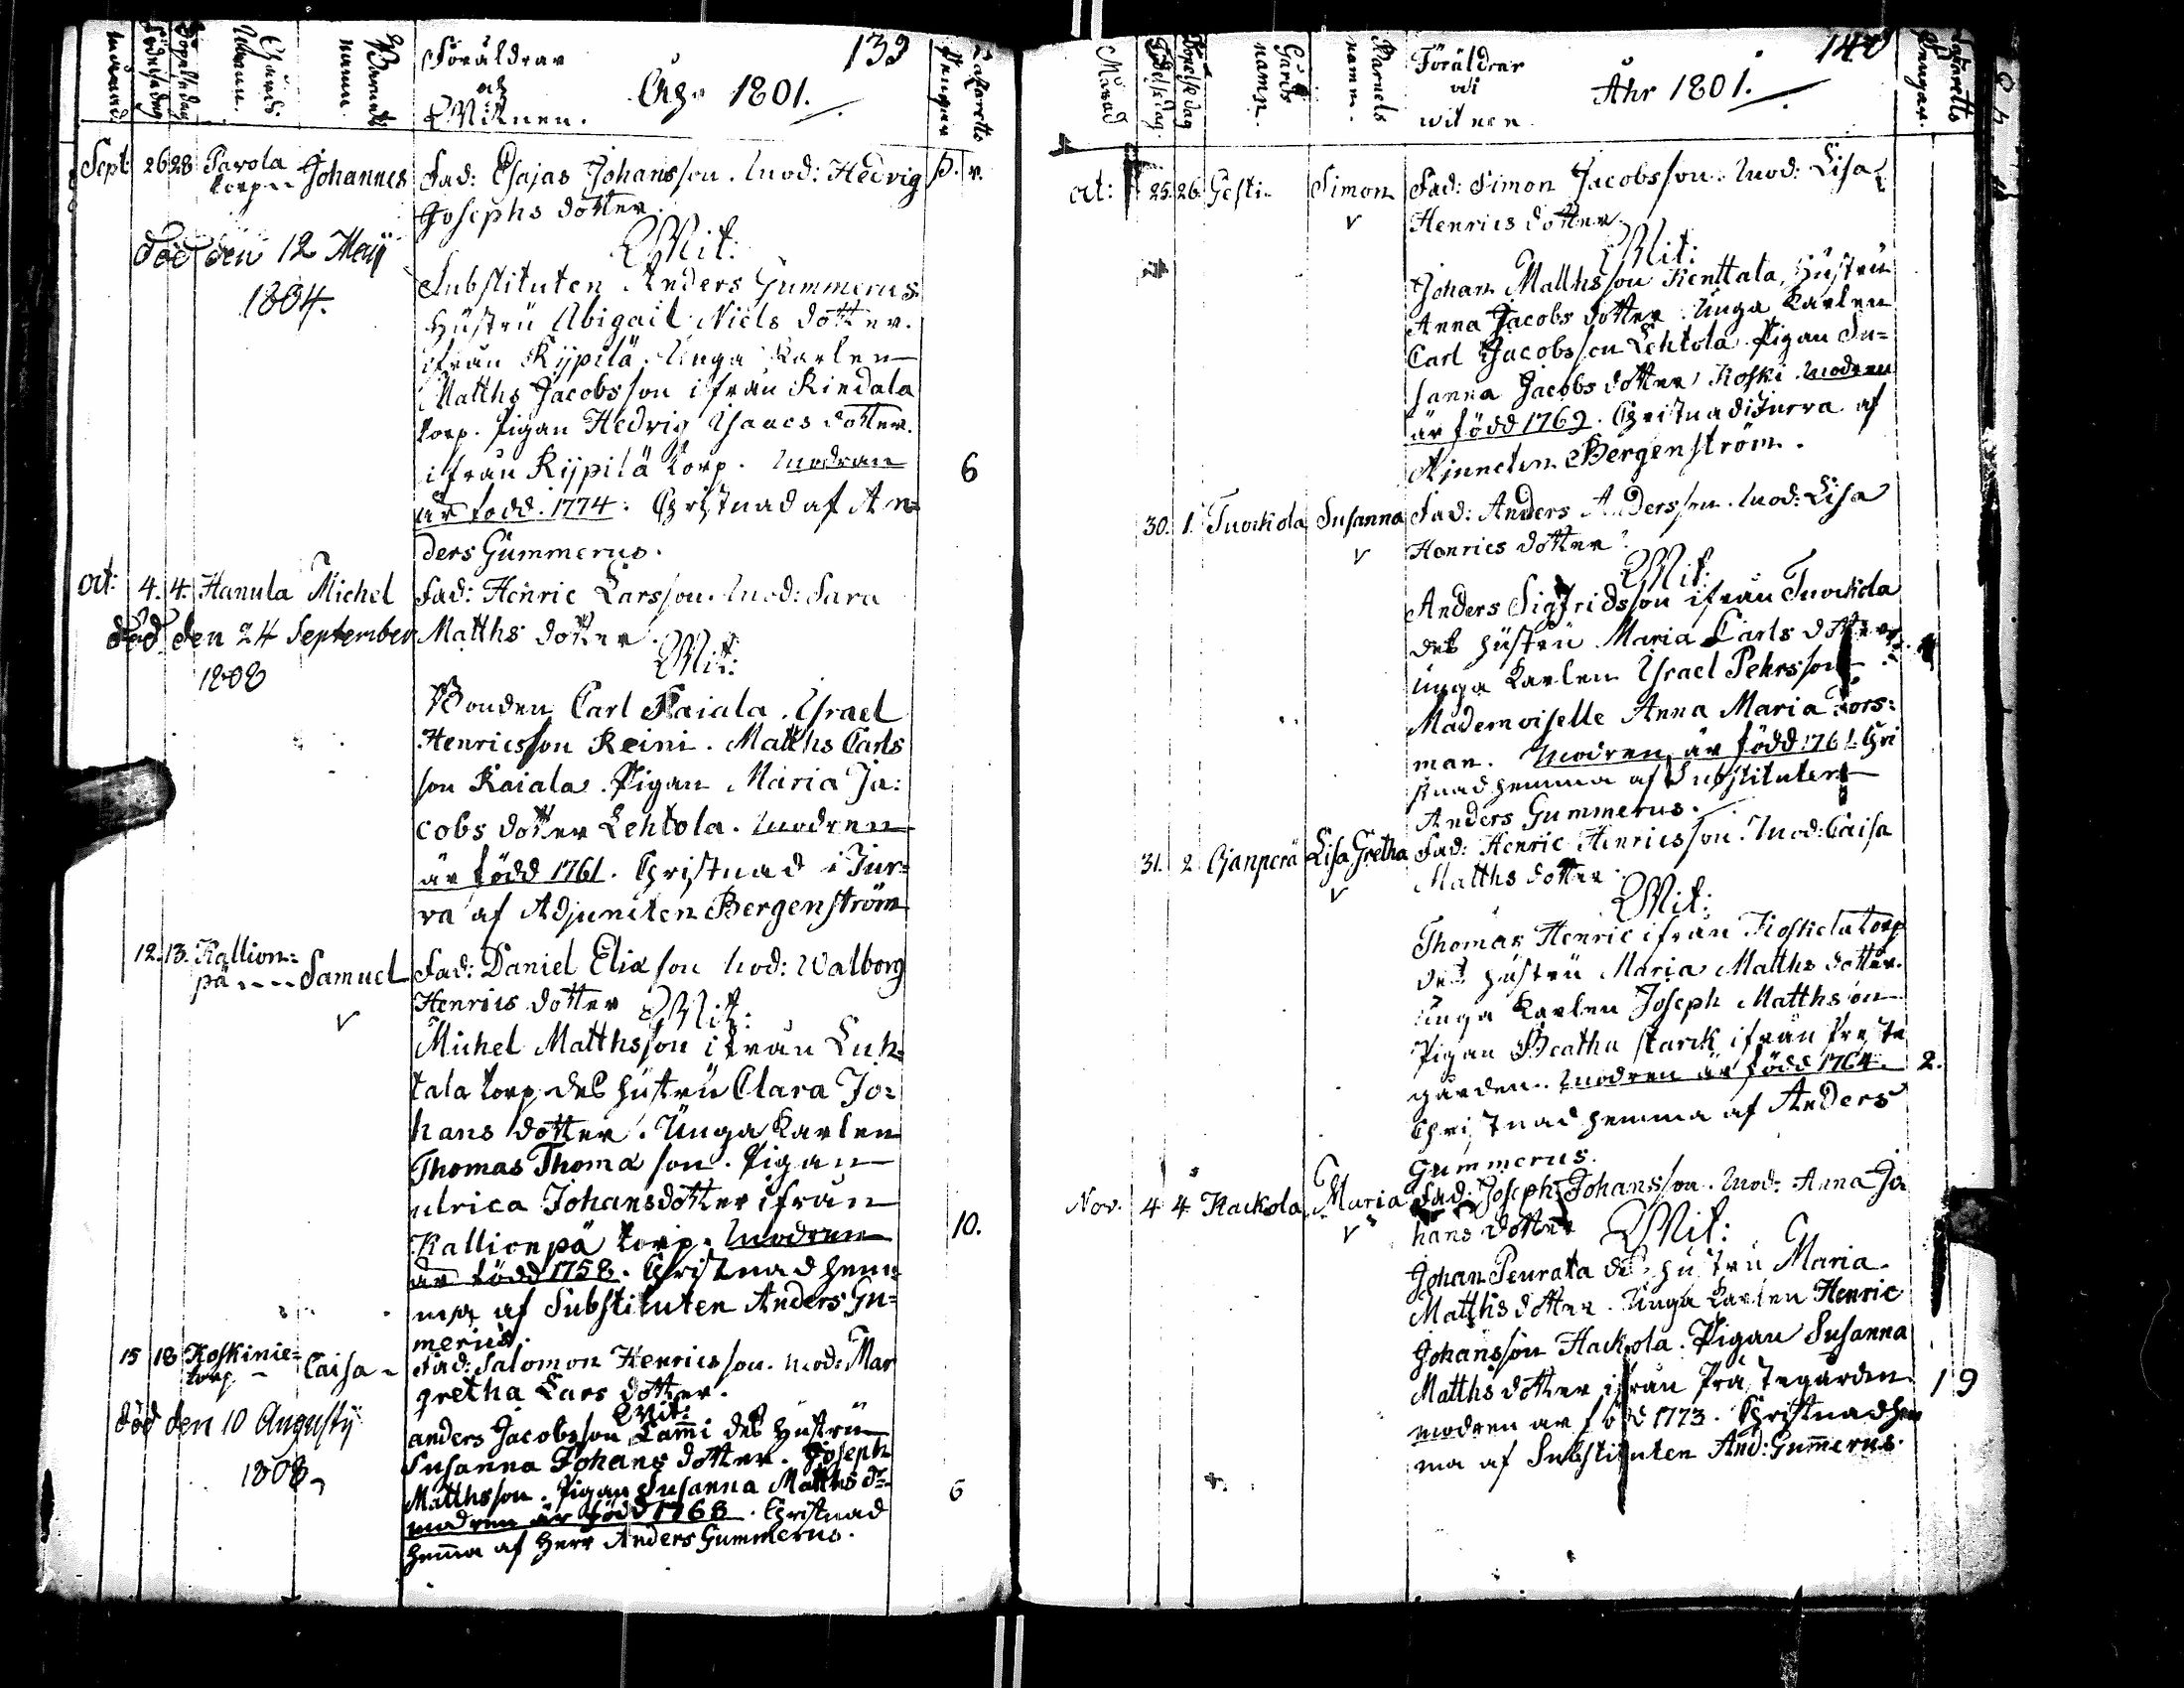 139
Månad
Födelsedag
Döpelsedag
Gårds namn.
Barnets namn.
Föräldrar
och
Witnen.
Åhr 1801.
Lazaretts Penngar
Sept: 26 28 Parola torp Johannes Fad: Esajas Johansson. Mod: Hedvig
Josephs dotter.
ß. r.
död den 12 Maij
1804.
Wit:
Substituten Anders Gummerus
Hustru Abigail Niels dotter.
ifrån Kijpilä. Unga Karlen
Matths Jacobsson ifrån Rindala
torp. Pigan Hedvig Isaacs dotter.
ifrån Kijpilä torp. Modran 6
är född. 1774. Christnad af An=
ders Gummerus.
Oct: 4. 4. Hanula Michel Fad: Henric Larsson. Mod: Sara
död den 24 September Matths dotter.
1808
Wit:
Bonden Carl Kaiala. Israel
Henricsson Reini. Matths Carls
son Kaiala. Pigan Maria Ja:
cobs dotter Lehtola. Modren
är född 1761. Christnad i Jur=
va af Adjuncten Bergenström
12. 13. Kallion=
pä Samuel Fad: Daniel Eliasson Mod: Walborg
Henrics dotter Wit:
v
Michel Matthsson ifrån Luh=
tala torp des hustru Clara Jo=
hans dotter. Unga Karlen
Thomas Thomasson. Pigan
Ulrica Johansdotter ifrån
Kallionpä torp. Modren 10.
är född 1758. Christnad hem=
ma af Substituten Anders Gu=
merus.
15 18 Koskinie=
torp Caisa Fad: Salomon Henricsson. Mod: Mar
gretha Lars dotter.
död den 10 Augusty
1808
Wit:
anders Jacobsson Lammi des hustru
Susanna Johans dotter. Joseph
Matthsson. Pigan Susanna Matths dr. 6
modren är född 1768. Christnad
hemma af Herr Anders Gummerus.
140
Månad
Födelsedag.
Döpelsedag
Gårds namn.
Barnets namn.
Föräldrar
och
witnen
Åhr 1801.
Lazaretts Pengar.
Oct: 25. 26. Gesti Simon Fad: Simon Jacobsson. Mod: Lisa
v Henrics dotter
Wit:
Johan Matthsson Kenttala, hustru
Anna Jacobs dotter. Unga Karlen
Carl Jacobsson Lehtola. Pigan Su=
sanna Jacobs dotter Koski. Modren
är född 1769. Christnad i Jurva af
Ajuncten Bergenström.
30. 1. Tuockola Susanna Fad: Anders Andersson. Mod: Lisa
v Henrics dotter
Wit:
Anders Sigfridsson ifrån Tuockola
des hustru Maria Carls dotter.
unga Karlen Israel Pehrsson
Mademoiselle Anna Maria Fors=
man. Modren är född 1761. Chri
stnad hemma af Substituten
Anders Gummerus.
31. 2 Ojanperä Lisa Gretha Fad: Henric Henricsson. Mod: Caisa
v Matths dotter.
Wit:
Thomas Henric ifrån Koskela torp
des hustru Maria Matths dotter.
unga Karlen Joseph Matthsson
Pigan Beatha Starck ifrån Preste
gården. Modren är född 1764. 2.
Christnad hemma af Anders
Gummerus.
Nov. 4 4 Hackola Maria Fad: Joseph Johansson. Mod: Anna Jo
v hans dotter Wit:
Johan Peurala des hustru Maria
Matths dotter. Unga Karlen Henric
Johansson Hackola. Pigan Susanna
Matths dotter ifrån Prästegården 19
modren är född 1773. Christnad hem
ma af Substituten And: Gummerus.